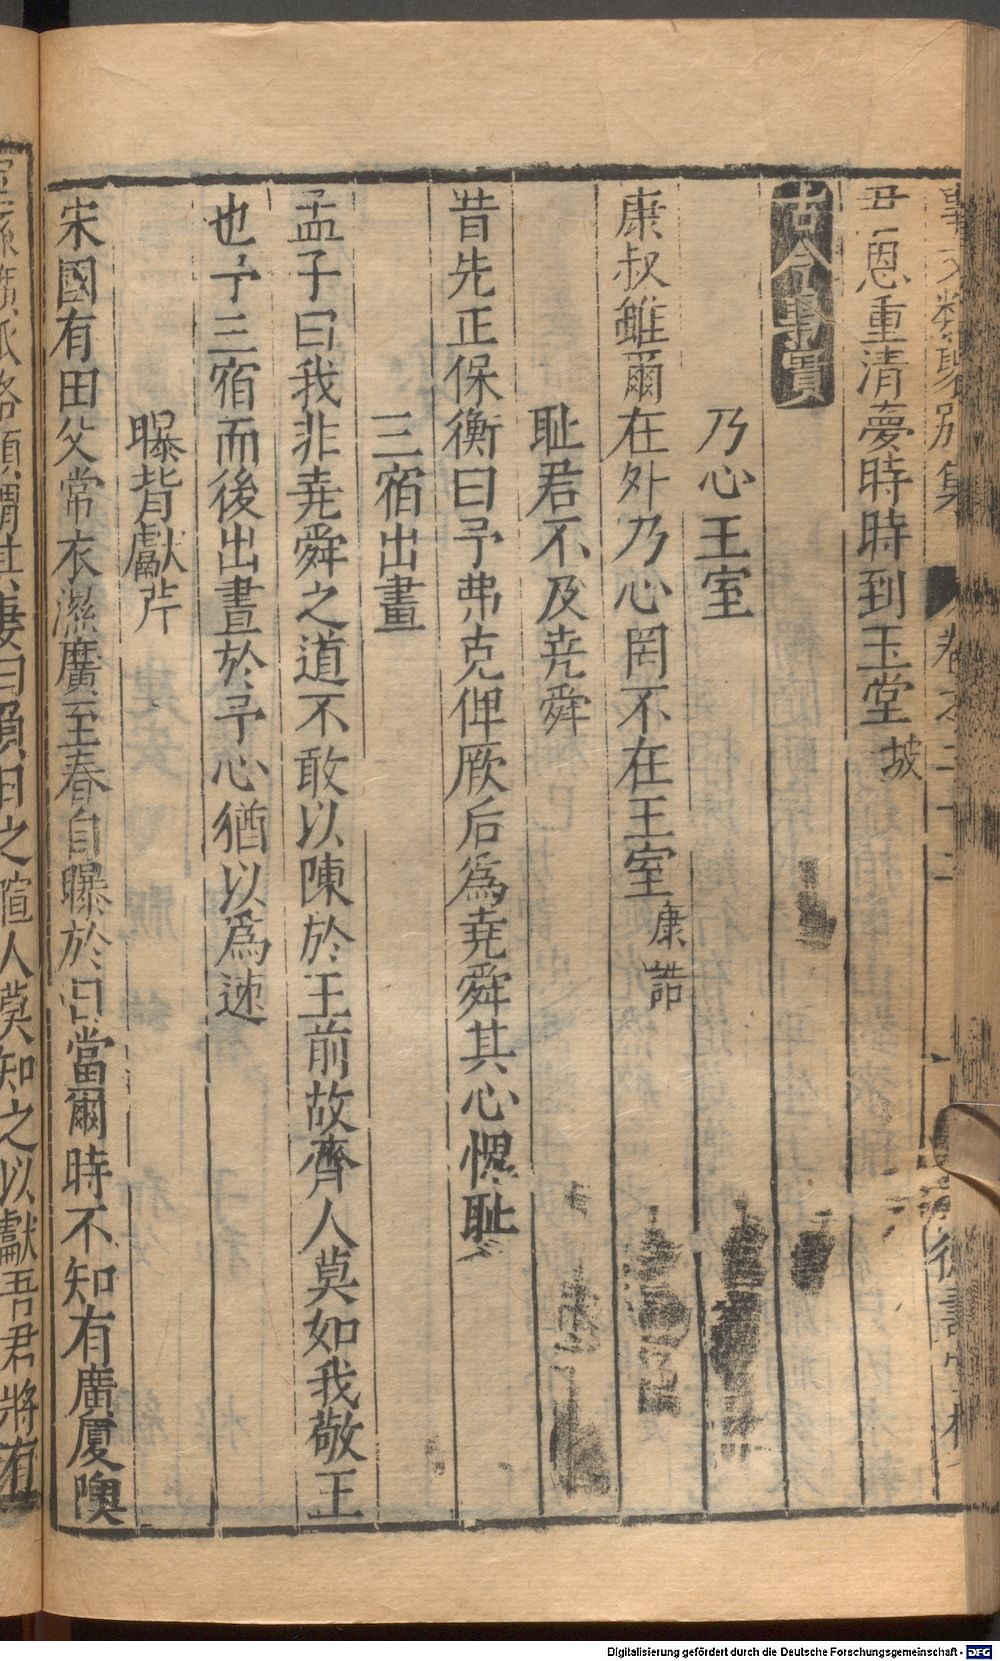 事文類聚別集 卷之二十三 德壽堂梓
君恩重清夢時時到玉堂坡
古今事實
乃心王室
康叔雖爾在外乃心罔不在王室康誥
耻君不及堯舜
昔先正保衡曰予弗克俾厥后爲堯舜其心愧耻
三宿出畫
孟子曰我非堯舜之道不敢以陳於王前故齊人莫如我敬王
也予三宿而後出晝於予心猶以爲速
曝背獻芹
宋國有田父常衣濕廣至春自曝於日當爾時不知有廣厦隩
室綿纊狐狢顧謂其妻曰負日之暄人莫知之以獻吾君將有
Digitalisierung gefördert durch die Deutsche Forschungsgemeinschaft - DFG